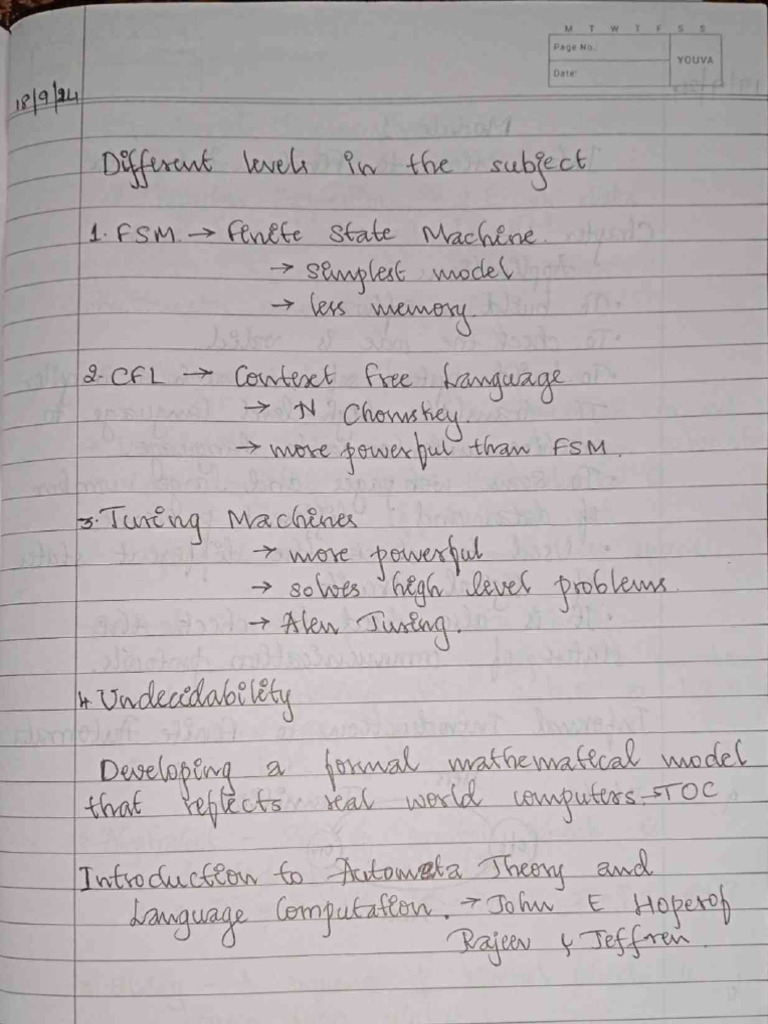 M T W T F S S
Page No.:
YOUVA
Date:
18/9/24
Different levels in the subject
1. FSM → Finite State Machine
→ simplest model
→ less memory.
2. CFL → Context Free Language
→ N Chomskey.
→ more powerful than FSM.
3. Turing Machines
→ more powerful
→ solves high level problems.
→ Alen Turing.
4 Undecidability
Developing a formal mathematical model
that reflects real world computers → TOC
Introduction to Automata Theory and
Language Computation. → John E Hoperof
Rajeev & Jeffren.